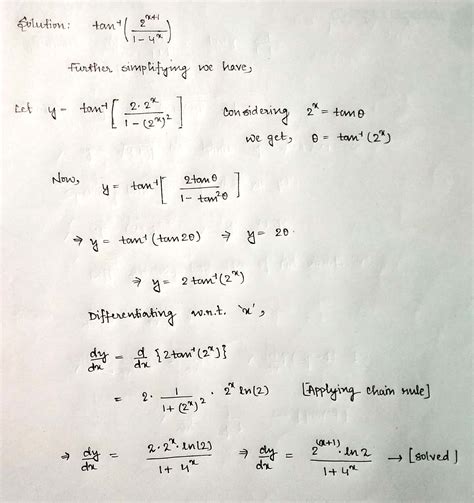 Solution: tan⁻¹(2^(x+1) / (1 - 4^x))
Further simplifying we have,
Let y = tan⁻¹[2·2^x / (1 - (2^x)²)] Considering 2^x = tanθ
we get, θ = tan⁻¹(2^x)
Now, y = tan⁻¹[2tanθ / (1 - tan²θ)]
⇒ y = tan⁻¹(tan2θ) ⇒ y = 2θ
⇒ y = 2tan⁻¹(2^x)
Differentiating w.r.t. 'x',
dy/dx = d/dx {2tan⁻¹(2^x)}
= 2 · 1/(1+(2^x)²) · 2^x ln(2) [Applying chain rule]
⇒ dy/dx = 2·2^x·ln(2) / (1+4^x) ⇒ dy/dx = 2^(x+1)·ln2 / (1+4^x) → [solved]